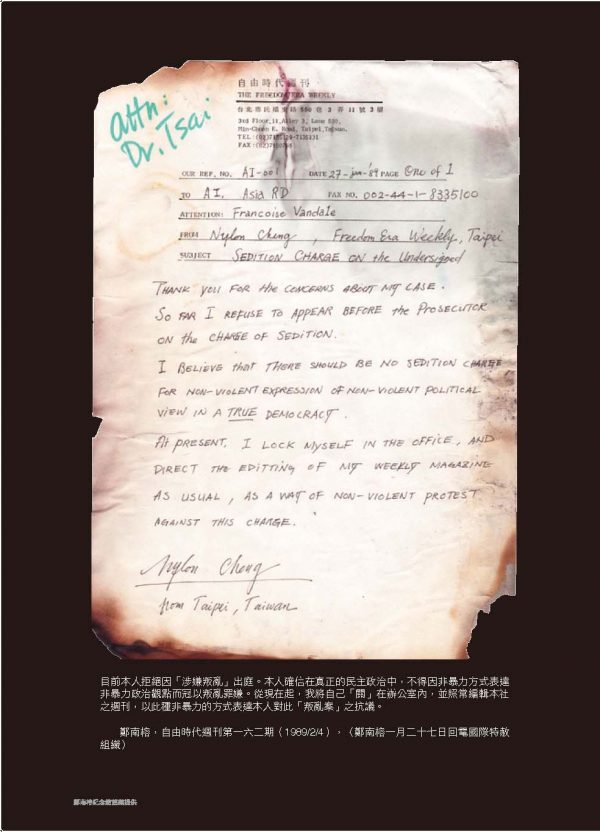 attn:
Dr. Tsai
自由時代週刊
THE FREEDOM ERA WEEKLY
台北市民權東路550巷3弄11號3樓
3rd Floor, 11, Alley 3, Lane 550,
Min-Chuan E. Road, Taipei, Taiwan.
OUR REF. NO. AI-001 DATE 27-jan-'89 PAGE One of 1
TO AI, Asia RD FAX NO. 002-44-1-8335100
ATTENTION: Francoise Vandale
FROM Nylon Cheng, Freedom Era Weekly, Taipei
SUBJECT SEDITION CHARGE ON the Undersigned
THANK YOU FOR the CONCERNS ABOUT MY CASE.
SO FAR I REFUSE TO APPEAR BEFORE the PROSECUTOR
ON the CHARGE OF SEDITION.
I BELIEVE that THERE SHOULD BE NO SEDITION CHARGE
FOR NON-VIOLENT EXPRESSION OF NON-VIOLENT POLITICAL
VIEW IN A TRUE DEMOCRACY.
At PRESENT, I LOCK MYSELF IN the OFFICE, AND
DIRECT the EDITTING OF MY WEEKLY MAGAZINE
AS USUAL, AS A WAY OF NON-VIOLENT PROTEST
AGAINST THIS CHARGE.
Nylon Cheng
from Taipei, Taiwan
目前本人拒絕因「涉嫌叛亂」出庭。本人確信在真正的民主政治中，不得因非暴力方式表達
非暴力政治觀點而冠以叛亂罪嫌。從現在起，我將自己「關」在辦公室內，並照常編輯本社
之週刊，以此種非暴力的方式表達本人對此「叛亂案」之抗議。
鄭南榕，自由時代週刊第一六二期（1989/2/4），（鄭南榕一月二十七日回電國際特赦
組織）
鄭南榕紀念館授權提供